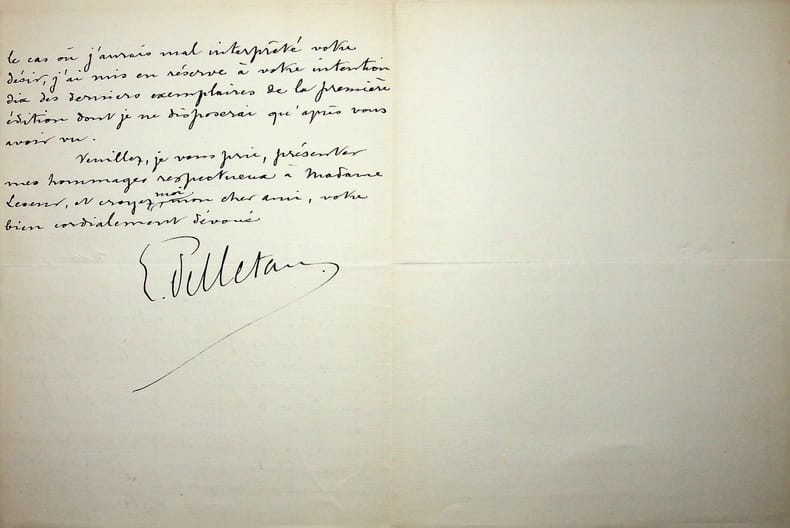 le cas où j'aurais mal interprété votre
désir, j'ai mis en réserve à votre intention
dix des derniers exemplaires de la première
édition dont je ne disposerai qu'après vous
avoir vu.
Veuillez, je vous prie, présenter
mes hommages respectueux à Madame
Leseur, et croyez moi, mon cher ami, votre
bien cordialement dévoué
E. Pelletan